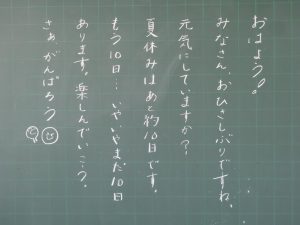 おはよう!
みなさん、おひさしぶりですね。
元気にしていますか?
夏休みはあと約10日です。
もう10日…いやいやまだ10日
あります。楽しんでいこう。
さぁがんばろう